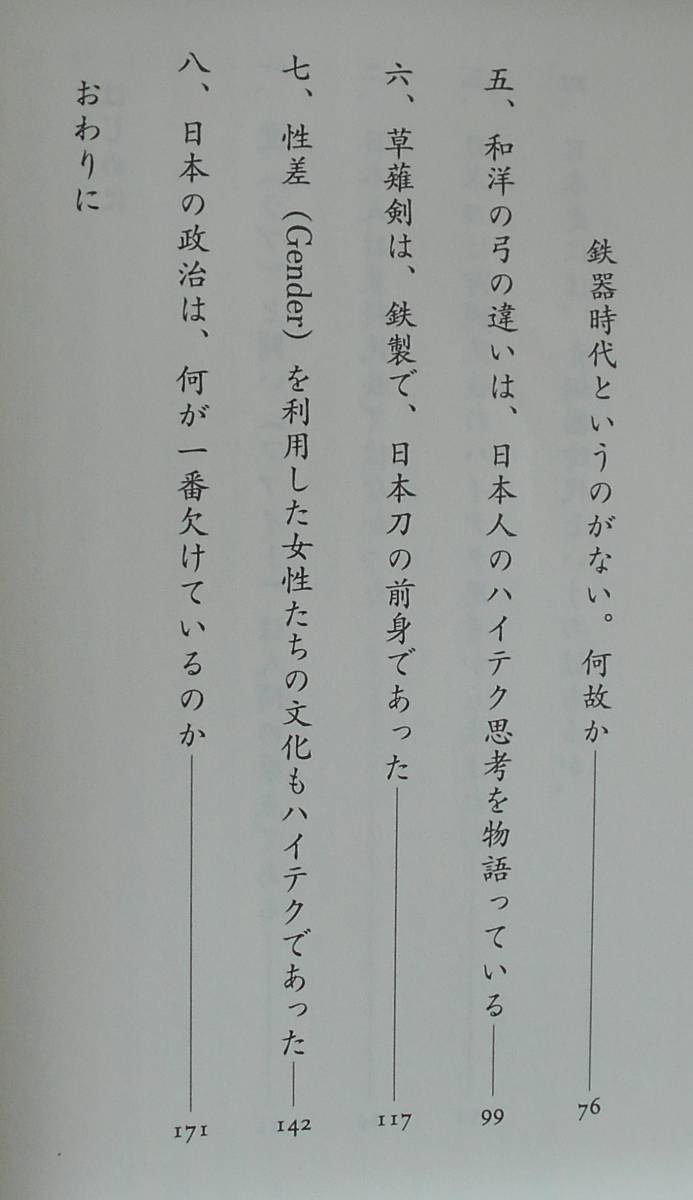 鉄器時代というのがない。何故か――76
五、和洋の弓の違いは、日本人のハイテク思考を物語っている――99
六、草薙剣は、鉄製で、日本刀の前身であった――117
七、性差（Gender）を利用した女性たちの文化もハイテクであった――142
八、日本の政治は、何が一番欠けているのか――171
おわりに